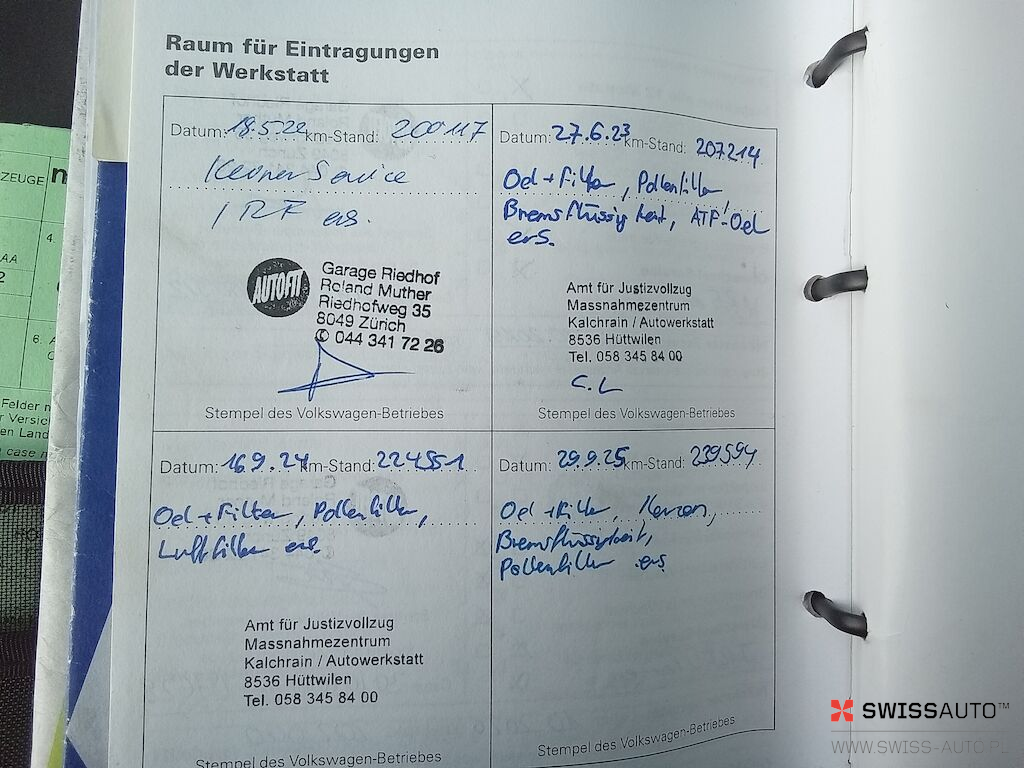 Raum für Eintragungen
der Werkstatt
Datum: 18.5.22 km-Stand: 200117
Service
ers.
AUTOFIT
Garage Riedhof
Roland Muther
Riedhofweg 35
8049 Zürich
✆ 044 341 72 26
Stempel des Volkswagen-Betriebes
Datum: 27.6.23 km-Stand: 207214
Oel + Filter, Pollenfilter
Bremsflüssigkeit, ATF-Oel
ers.
Amt für Justizvollzug
Massnahmezentrum
Kalchrain / Autowerkstatt
8536 Hüttwilen
Tel. 058 345 84 00
C.L
Stempel des Volkswagen-Betriebes
Datum: 16.9.24 km-Stand: 224551
Oel + Filter, Pollenfilter,
Luftfilter ers.
Amt für Justizvollzug
Massnahmezentrum
Kalchrain / Autowerkstatt
8536 Hüttwilen
Tel. 058 345 84 00
Stempel des Volkswagen-Betriebes
Datum: 29.9.25 km-Stand: 239594
Oel + Filter, Kerzen,
Bremsflüssigkeit,
Pollenfilter ers
Stempel des Volkswagen-Betriebes
ZEUGE
4.
AA
2
6. A
Felder
Versic
en Land
case
SWISSAUTO™
WWW.SWISS-AUTO.PL